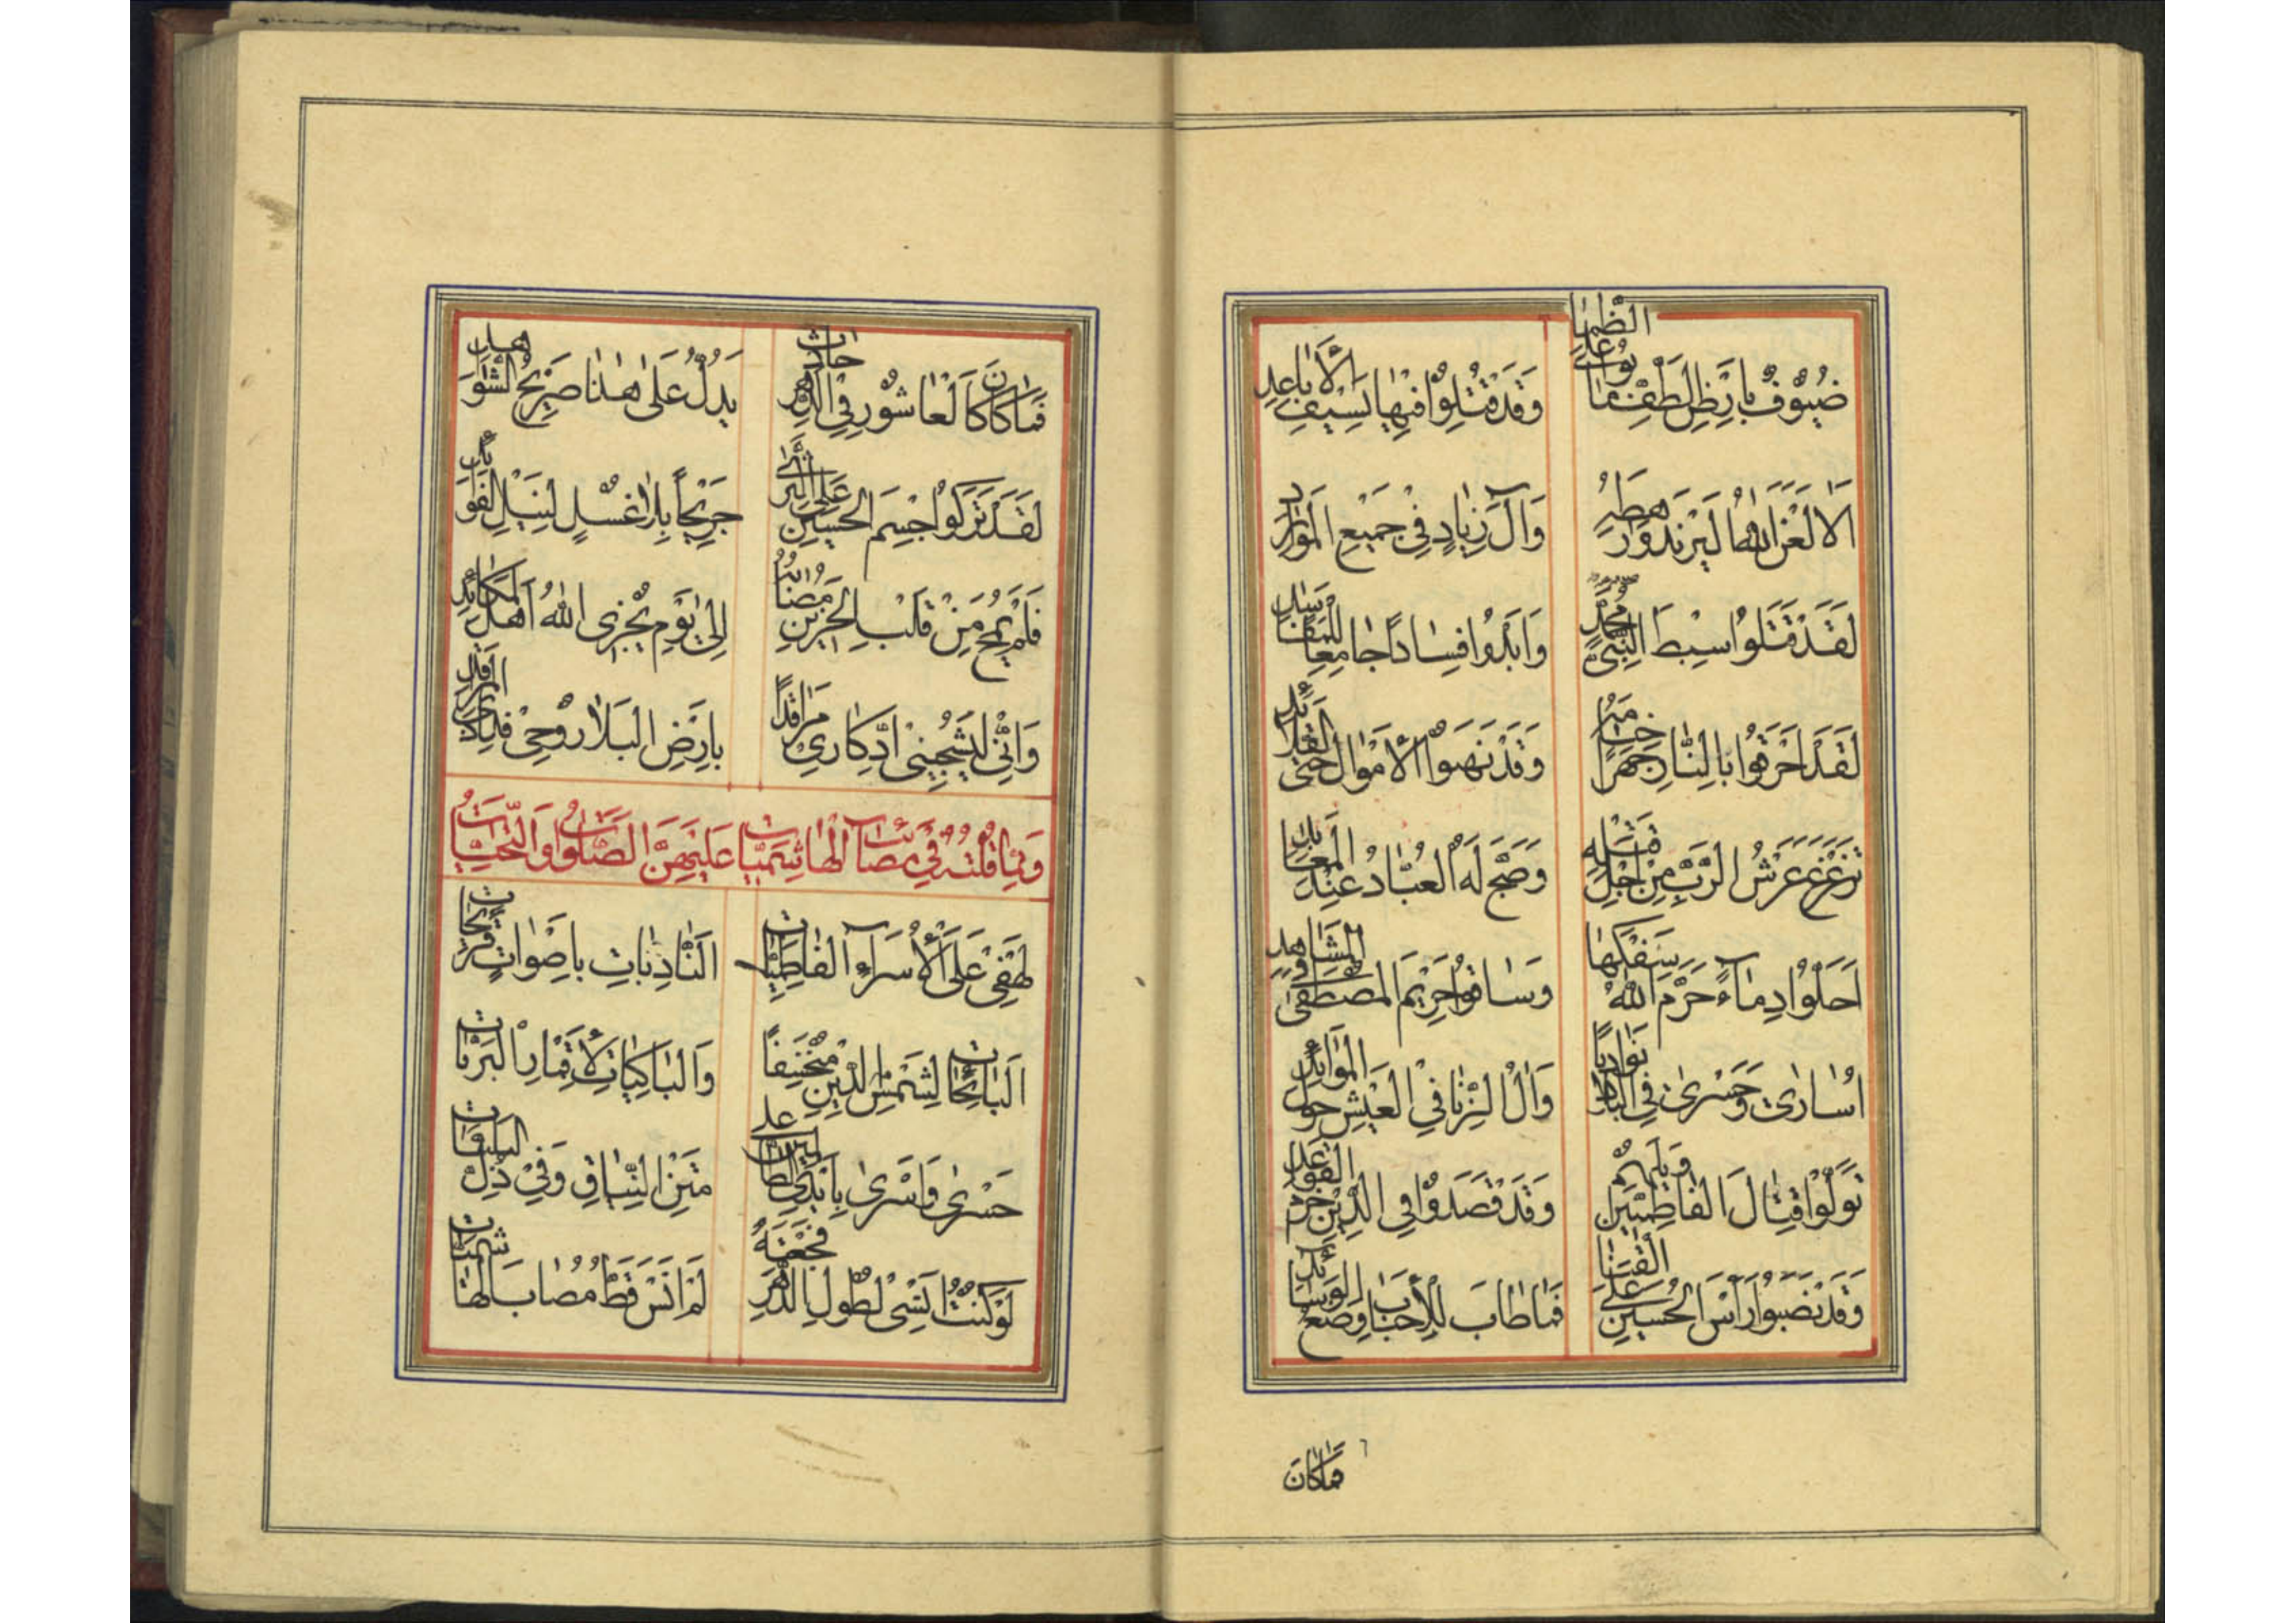 ضُيُوْفٌ بِاَرْضِ الطَّفِّ مَاتُوْا عَلَى الظَّمَا وَقَدْ قُتِلُوْا فِيْهَا بِسَيْفِ الْاَبَاعِدِ
اَلَا لَعَنَ اللّٰهُ وَرَهْطَهُ وَاٰلَ زِيَادٍ فِيْ جَمِيْعِ الْمَوَارِدِ
لَقَدْ قَتَلُوْا سِبْطَ النَّبِيِّ مُحَمَّدٍ وَاَبْدَوْا فِسَادًا جَامِعًا لِلْمَفَاسِدِ
لَقَدْ اَحْرَقُوْا بِالنَّارِ جَهْرًا وَقَدْ نَهَبُوا الْاَمْوَالَ حَتَّى الْقَلَائِدِ
تَزَعْزَعَ عَرْشُ الرَّبِّ مِنْ اَجْلِ قَتْلِهِ وَضَجَّ لَهُ الْعُبَّادُ عِنْدَ الْمَعَابِدِ
اَحَلُّوْا دِمَاءً حَرَّمَ اللّٰهُ سَفْكَهَا وَسَاقُوْا حَرِيْمَ الْمُصْطَفٰى الْمَشَاهِدِ
اُسَارٰى وَحَسْرٰى فِي الْبِلَادِ بَوَادِيًا وَاٰلُ الزِّنَا فِي الْعَيْشِ حَوْلَ الْمَوَائِدِ
تَوَلَّوْا قِتَالَ الْفَاطِمِيِّيْنَ وَيْلَهُمْ وَقَدْ قَصَدُوْا فِي الدِّيْنِ الْقَوَاعِدِ
وَقَدْ نَصَبُوْا رَاْسَ الْحُسَيْنِ عَلَى الْقَنَا فَمَا طَابَ لِلْاَحْبَابِ وَضْعُ الْوَسَائِدِ
فَمَا كَانَ
فَمَا كَانَ كَالْعَاشُوْرِ فِي الدَّهْرِ حَادِثٌ يَدُلُّ عَلٰى هٰذَا صَرِيْحُ الشَّوَاهِدِ
لَقَدْ تَرَكُوْا جِسْمَ الْحُسَيْنِ عَلَى الثَّرٰى جَرِيْحًا بِلَا غُسْلٍ لِنَيْلِ الْفَوَائِدِ
فَلَمْ يُمْحَ مِنْ قَلْبِ الْحَزِيْنِ مُصَابُهُ اِلٰى يَوْمِ يُجْزِي اللّٰهُ اَهْلَ الْمَكَائِدِ
وَاِنِّيْ لَيُشْجِيْنِيْ ادِّكَارِيْ مَرَاقِدًا بِاَرْضِ الْبَلَا رُوْحِيْ فِدَا الْمَرَاقِدِ
وَمِمَّا قُلْتُهُ فِيْ مَصَائِبِ الْهَاشِمِيَّاتِ عَلَيْهِنَّ الصَّلَوَاتُ وَالتَّحِيَّاتُ
لَهْفِيْ عَلَى الْاُسَرَاءِ الْفَاطِمِيَّاتِ اَلنَّادِبَاتِ بِاَصْوَاتٍ
اَلنَّائِحَاتِ لِشَمْسِ الدِّيْنِ مُنْخَسِفًا وَالْبَاكِيَاتِ لِاَقْمَارِ الْبَرِيَّاتِ
حَسْرٰى وَاَسْرٰى بِاَيْدِي الظَّالِمِيْنَ عَلٰى مَتْنِ النِّيَاقِ وَفِيْ ذُلِّ الْبَلِيَّاتِ
لَوْ كُنْتُ اَنْسٰى لِطُوْلِ الدَّهْرِ فَجْعَتَهُ لَمْ اَنْسَ قَطُّ مُصَابَ الْهَاشِمِيَّاتِ